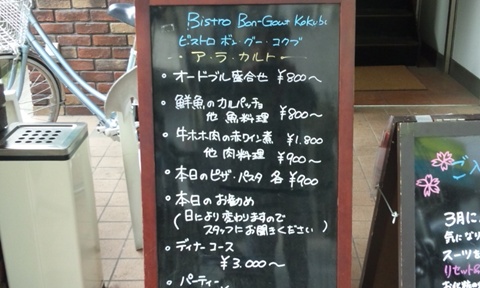 Bistro Bon-Gout Kokubu
ビストロ ボン・グー・コクブ
ア・ラ・カルト
・オードブル盛合せ ¥800〜
・鮮魚のカルパッチョ
他 魚料理 ¥800〜
・牛ホホ肉の赤ワイン煮 ¥1.800
他 肉料理 ¥900〜
・本日のピザ・パスタ 各¥900
・本日のお勧め
(日により変わりますので
スタッフにお聞きください)
・ディナーコース
¥3.000〜
・パーティー
ご入
3月に
気になり
スーツを
リセット&